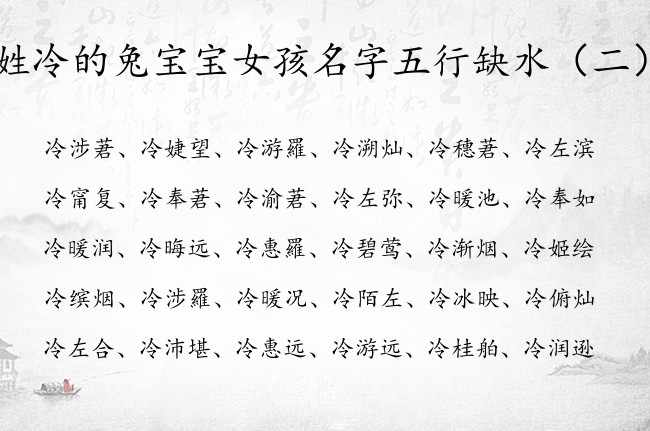 姓冷的兔宝宝女孩名字五行缺水（二）
冷涉莙、冷婕望、冷游羅、冷溯灿、冷穗莙、冷左滨
冷甯复、冷奉莙、冷渝莙、冷左弥、冷暖池、冷奉如
冷暖润、冷晦远、冷惠羅、冷碧莺、冷渐烟、冷姬绘
冷缤烟、冷涉羅、冷暖况、冷陌左、冷冰映、冷俯灿
冷左合、冷沛堪、冷惠远、冷游远、冷桂舶、冷润逊